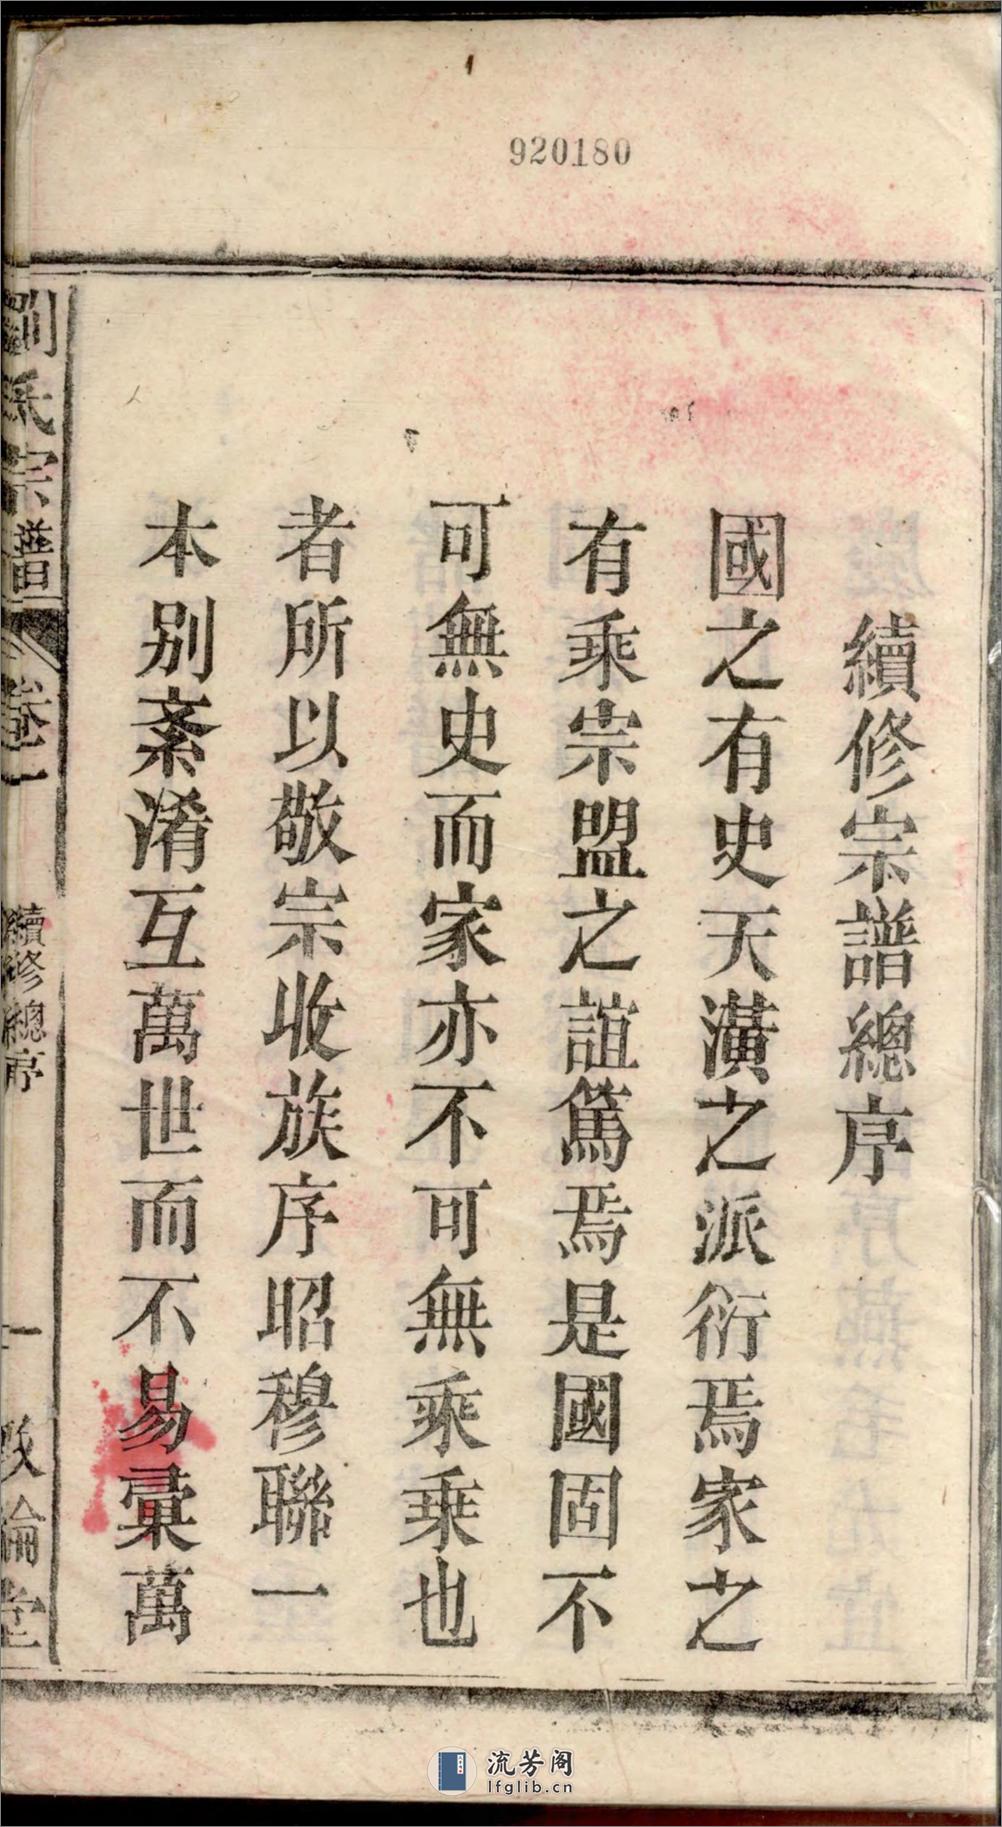 920180
續修宗譜總序
國之有史天潢之派衍焉家之
有乘宗盟之誼篤焉是國固不
可無史而家亦不可無乘乘也
者所以敬宗收族序昭穆聯一
本别紊淆互萬世而不易彚萬
劉氏宗譜
卷一
續修總序
一
敦倫堂
流芳阁
lfglib.cn